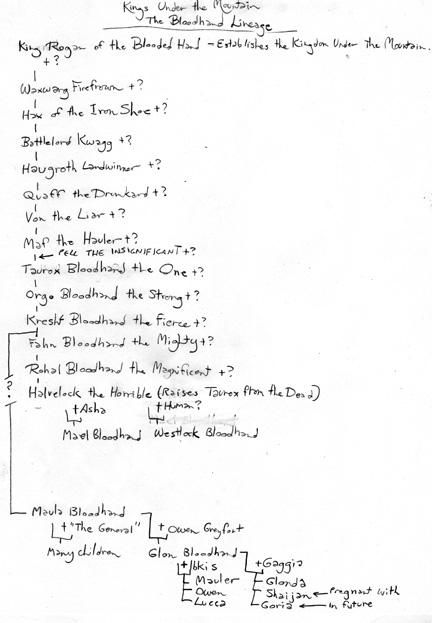 Kings Under the Mountain
The Bloodhand Lineage
King Rogan of the Blooded Hand - Establishes the Kingdom Under the Mountain.
+?
Waxwarg Firefrown +?
Hax of the Iron Shoe +?
Battlelord Kwagg +?
Haugroth Landwinner +?
Quaff the Drunkard +?
Von the Liar +?
Maf the Hauler +?
← PELL THE INSIGNIFICANT +?
Taurox Bloodhand the One +?
Orgo Bloodhand the Strong +?
Kresht Bloodhand the Fierce +?
Fahn Bloodhand the Mighty +?
?
Rohal Bloodhand the Magnificent +?
Halvelock the Horrible (Raises Taurox from the Dead)
+Asha +Human?
Mael Bloodhand Westlock Bloodhand
Maula Bloodhand
+ "The General" + Owen Greyfort
Many children Glon Bloodhand
+Ibkis +Gaggia
Mauler Glonda
Owen Shaijan ← Pregnant with
Lucca Goria ← in future